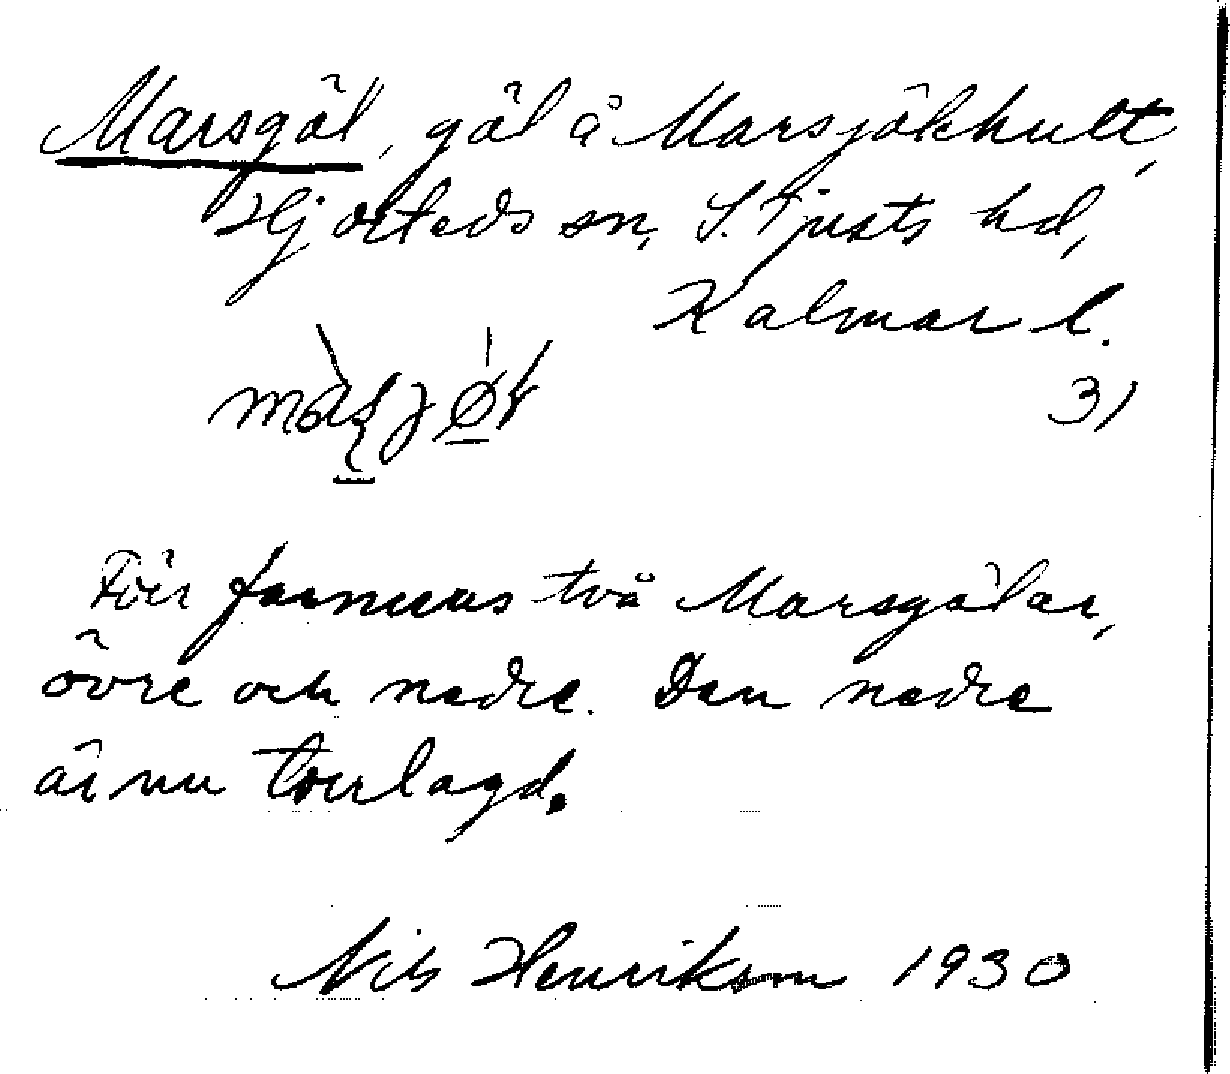 Marsgöl, göl å Marsjökhult,
Hjorteds sn, S. Tjusts hd,
Kalmar l.
31
Förr fannas två Marsgölar,
övre och nedre. Den nedre
är nu torrlagd.
Nils Henrikson 1930